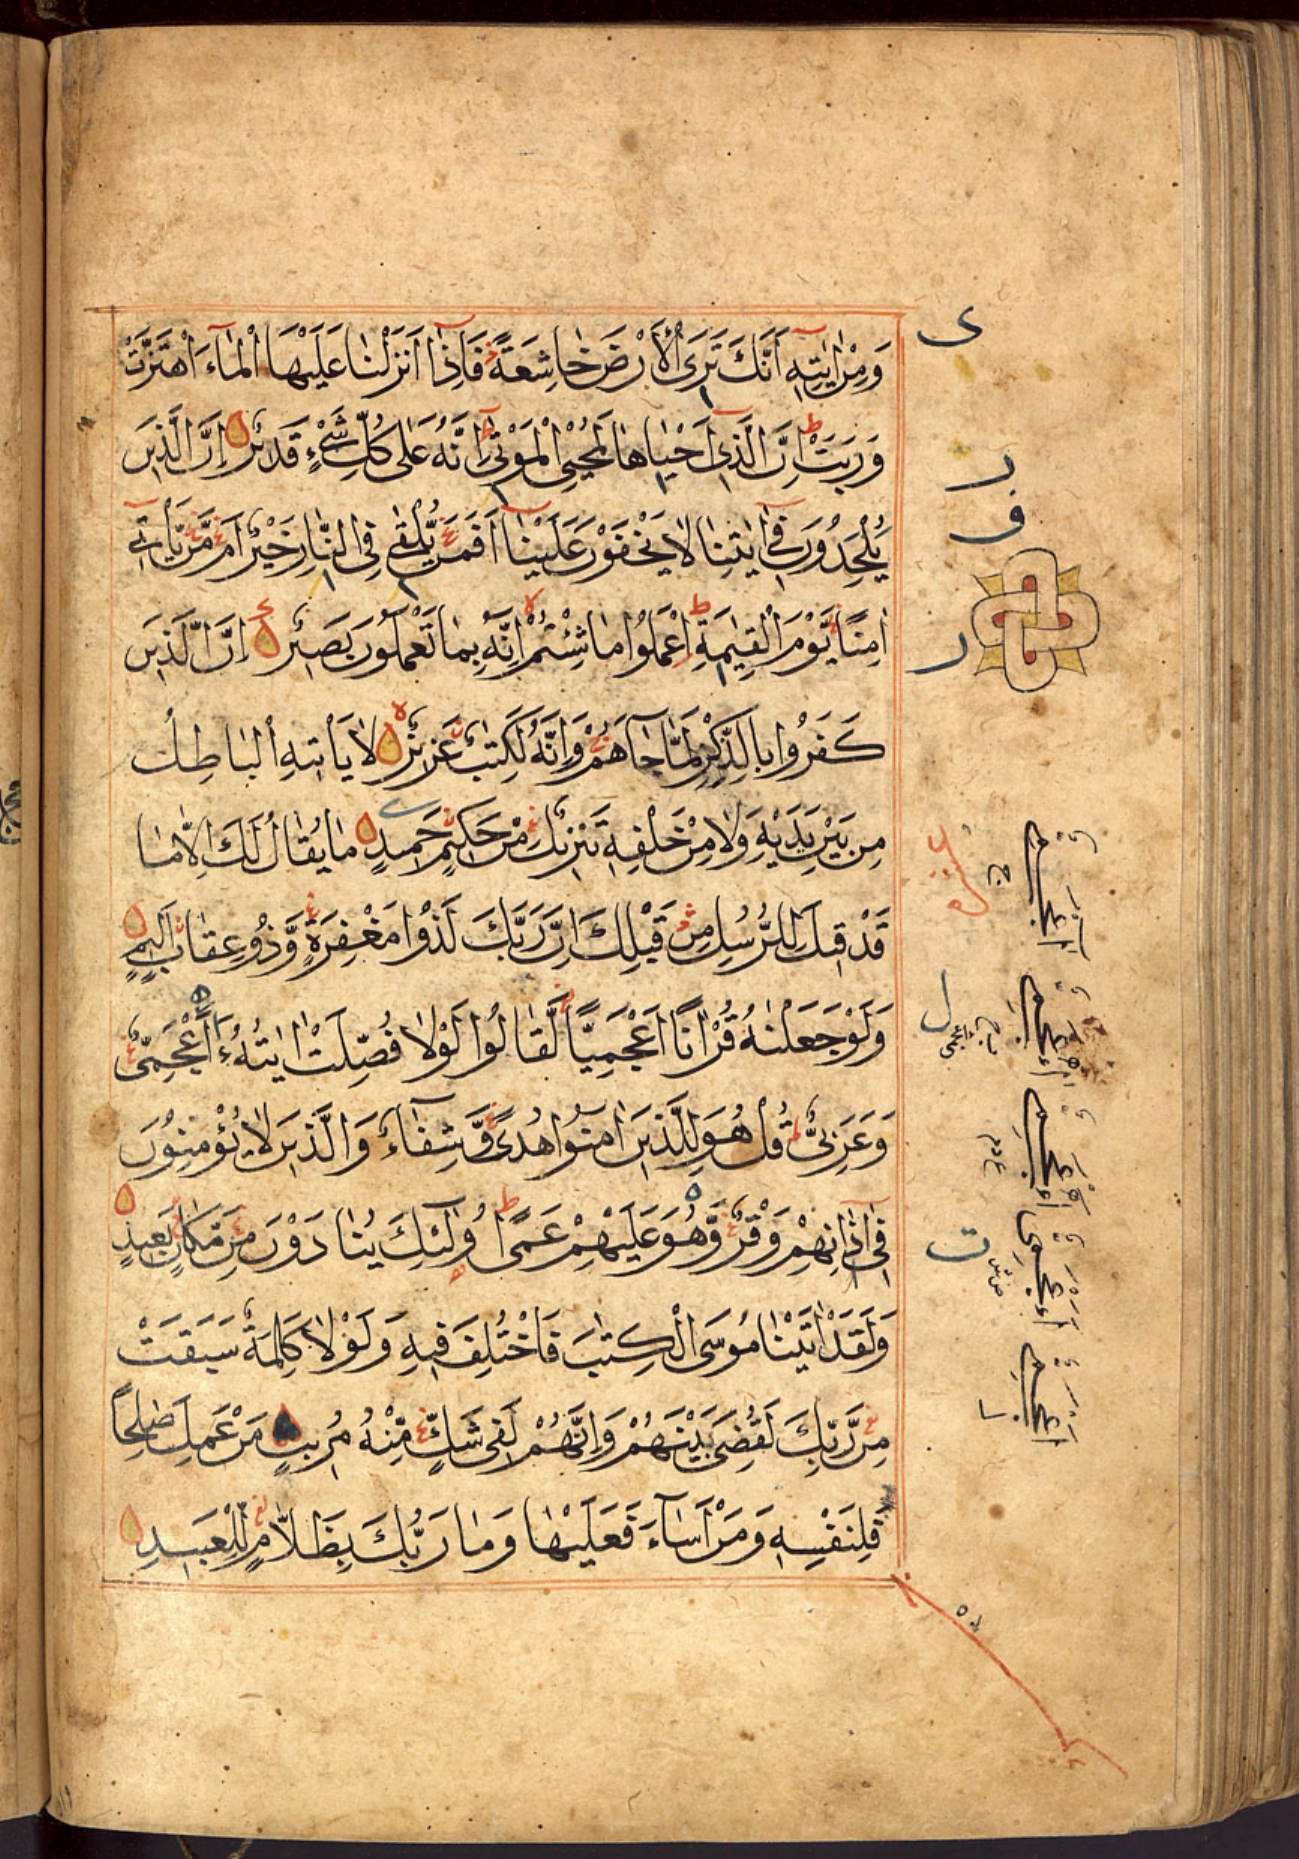 وَمِنْ اٰيٰتِهِ اَنَّكَ تَرَى الْاَرْضَ خَاشِعَةً فَاِذَا اَنْزَلْنَا عَلَيْهَا الْمَآءَ اهْتَزَّتْ
وَرَبَتْ اِنَّ الَّذِي اَحْيَاهَا لَمُحْيِ الْمَوْتٰى اِنَّهُ عَلٰى كُلِّ شَيْءٍ قَدِيْرٌ اِنَّ الَّذِيْنَ
يُلْحِدُوْنَ فِي اٰيٰتِنَا لَا يَخْفَوْنَ عَلَيْنَا اَفَمَنْ يُّلْقٰى فِي النَّارِ خَيْرٌ اَمْ مَّنْ يَّاْتِيْ
اٰمِنًا يَّوْمَ الْقِيٰمَةِ اِعْمَلُوْا مَا شِئْتُمْ اِنَّهُ بِمَا تَعْمَلُوْنَ بَصِيْرٌ اِنَّ الَّذِيْنَ
كَفَرُوْا بِالذِّكْرِ لَمَّا جَآءَهُمْ وَاِنَّهُ لَكِتٰبٌ عَزِيْزٌ لَا يَاْتِيْهِ الْبَاطِلُ
مِنْ بَيْنِ يَدَيْهِ وَلَا مِنْ خَلْفِهِ تَنْزِيْلٌ مِنْ حَكِيْمٍ حَمِيْدٍ مَا يُقَالُ لَكَ اِلَّا مَا
قَدْ قِيْلَ لِلرُّسُلِ مِنْ قَبْلِكَ اِنَّ رَبَّكَ لَذُوْا مَغْفِرَةٍ وَّذُوْ عِقَابٍ اَلِيْمٍ
وَلَوْ جَعَلْنٰهُ قُرْاٰنًا اَعْجَمِيًّا لَّقَالُوْا لَوْلَا فُصِّلَتْ اٰيٰتُهُ ءَاَعْجَمِيٌّ
وَعَرَبِيٌّ قُلْ هُوَ لِلَّذِيْنَ اٰمَنُوْا هُدًى وَّشِفَآءٌ وَالَّذِيْنَ لَا يُؤْمِنُوْنَ
فِيْ اٰذَانِهِمْ وَقْرٌ وَّهُوَ عَلَيْهِمْ عَمًى اُولٰئِكَ يُنَادَوْنَ مِنْ مَّكَانٍ بَعِيْدٍ
وَلَقَدْ اٰتَيْنَا مُوْسَى الْكِتٰبَ فَاخْتُلِفَ فِيْهِ وَلَوْلَا كَلِمَةٌ سَبَقَتْ
مِنْ رَّبِّكَ لَقُضِيَ بَيْنَهُمْ وَاِنَّهُمْ لَفِيْ شَكٍّ مِّنْهُ مُرِيْبٍ مَنْ عَمِلَ صٰلِحًا
فَلِنَفْسِهِ وَمَنْ اَسَآءَ فَعَلَيْهَا وَمَا رَبُّكَ بِظَلَّامٍ لِّلْعَبِيْدِ